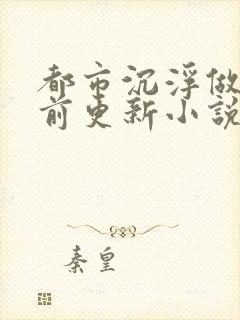 都市沉浮做
前更新小說
秦皇